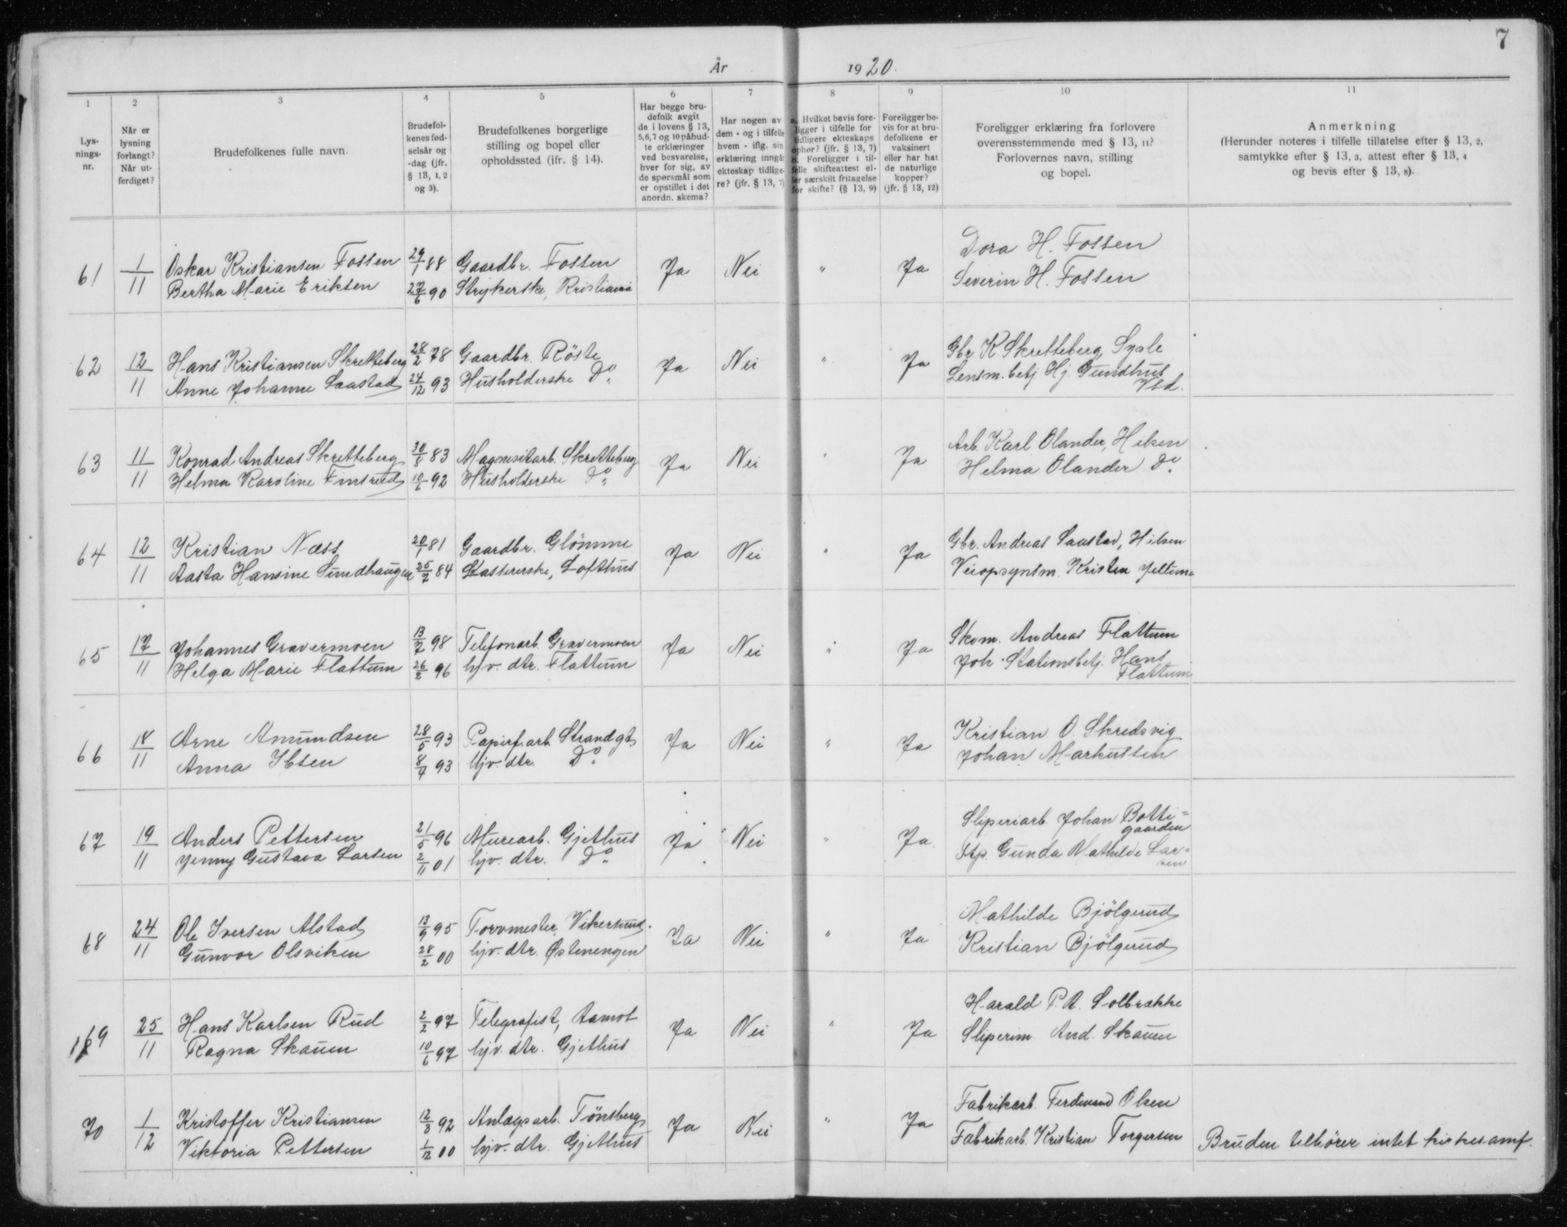 7
År 1920.
1
2
3
4
5
6
7
8
9
10
11
Lys-
nings-
nr.
Når er
lysning
forlangt?
Når ut-
ferdiget?
Brudefolkenes fulle navn.
Brudefol-
kenes fød-
selsår og
-dag (jfr.
§ 13, 1, 2
og 3).
Brudefolkenes borgerlige
stilling og bopel eller
opholdssted (ifr. § 14).
Har begge bru-
defolk avgit
de i lovens § 13,
5,6,7 og 10 påbud-
te erklæringer
ved besvarelse,
hver for sig, av
de spørsmål som
er opstillet i det
anordn. skema?
Har nogen av
dem - og i tilfelle
hvem - iflg. sin
erklæring inngå
ekteskap tidlige-
re? (jfr. § 13, 7)
a. Hvilket bevis fore-
ligger i tilfelle for
tidligere ekteskaps
ophør? (jfr. § 13, 7)
b. Foreligger i til-
felle skifteattest el-
ler særskilt fritagelse
for skifte? (§ 13, 9)
Foreligger be-
vis for at bru-
defolkene er
vaksinert
eller har hat
de naturlige
kopper?
(jfr. § 13, 12)
Foreligger erklæring fra forlovere
overensstemmende med § 13, 11?
Forlovernes navn, stilling
og bopel.
Anmerkning
(Herunder noteres i tilfelle tillatelse efter § 13, 2,
samtykke efter § 13, 3, attest efter § 13, 4
og bevis efter § 13, 8).
61 1/11 Oskar Kristiansen Fossen 29/1 88 Gaardbr. Fossen Ja Nei " Ja Dora H. Fossen
Bertha Marie Eriksen 27/6 90 Strykerske, Kristiania Severin H. Fossen
62 12/11 Hans Kristiansen Skretteberg 28/2 78 Gaardbr. Röste Ja Nei " Ja Gbr. K Skretteberg, Sysle
Anne Johanne Saastad 24/12 93 Husholderske Do. Lensm. betj Hj Gundhus
Vsd.
63 11/11 Konrad Andreas Skretteberg 30/8 83 Magnesitarb. Skretteberg Ja Nei " Ja Arb. Karl Olander, Hilsen
Helma Karoline Finsrud 10/6 92 Husholderske Do. Helma Olander Do.
64 12/11 Kristian Næss 20/1 81 Gaardbr. Glömme Ja Nei " Ja Gbr. Andreas Saastad, Hilsen
Aasta Hansine Sundhaugen 25/2 84 Kassererske, Lofthus Veiopsynsm. Kristen Jellum
65 17/11 Johannes Gravermoen 13/2 98 Telefonarb. Gravermoen Ja Nei " Ja Skom. Andreas Flattum
Helga Marie Flattum 26/2 96 hjv. dtr. Flattum Joh. Stationsbetj. Hans
Flattum
66 18/11 Arne Amundsen 28/5 93 Papirf.arb. Strandgt Ja Nei " Ja Kristian O. Skredsvig
Anna Ibsen 8/4 93 hjv. dtr. Do. Johan Markussen
67 19/11 Anders Pettersen 21/5 96 Murearb. Gjethus Ja Nei " Ja. Sliperiarb Johan Botti=
gaarden
Jenny Gustava Larsen 2/11 01 hjv. dtr. Do. Gunda Mathilde Lar=
sen
68 24/11 Ole Iversen Alstad 13/9 95 Torvmester, Vikersund. Ja Nei " Ja Mathilde Bjölgerud
Gunvor Olsviken 28/2 00 hjv. dtr. Østenengen Kristian Bjölgerud
169 25/11 Hans Karlsen Rud 2/2 97 Telegrafist, Aamot Ja Nei " Ja Harald P. A. Solbrække
Ragna Skauen 10/6 97 hjv. dtr. Gjethus Sliperim And. Skauen
70 1/12 Kristoffer Kristiansen 12/3 92 Anlægsarb. Tönsberg Ja Nei " Ja Fabrikarb. Ferdinand Olsen
Viktoria Pettersen 1/12 00 hjv. dtr. Gjethus Fabrikarb. Kristian Torgersen Bruden tilhører intet kirkesamf.